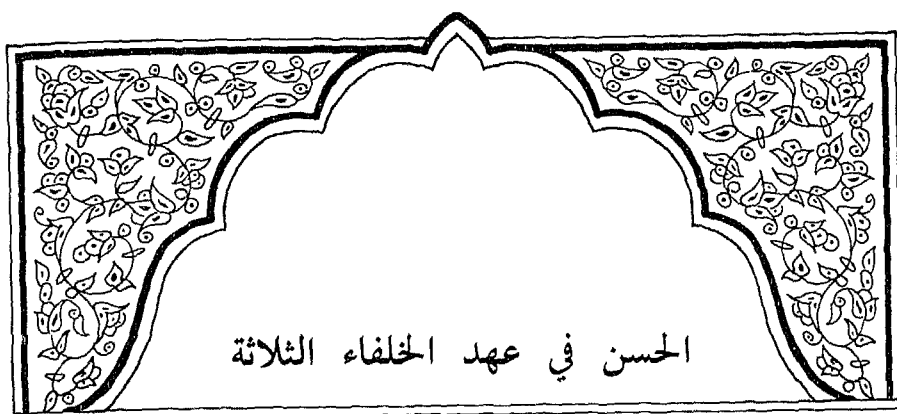 الحسن في عهد الخلفاء الثلاثة